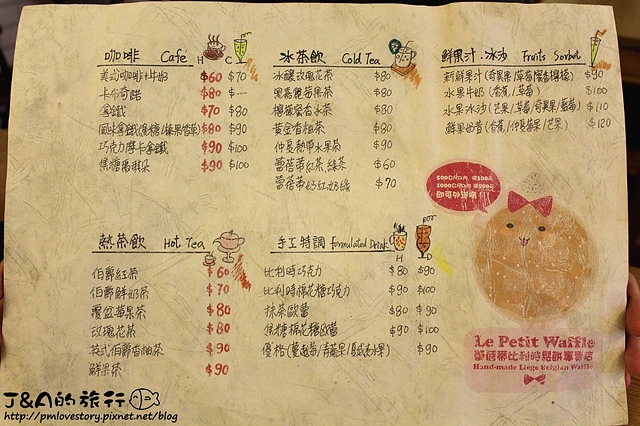 咖啡 Cafe H C
美式咖啡+牛奶 $60 $70
卡布奇諾 $80 $---
拿鐵 $70 $80
風味拿鐵(焦糖/榛果/香草) $80 $90
巧克力摩卡拿鐵 $90 $100
焦糖瑪琪朵 $90 $100
冰茶飲 Cold Tea
冰釀玫瑰花茶 $80
$80
檸檬蜜香冰茶 $80
黃金香柚茶 $80
仲夏熱帶水果茶 $90
蕾蓓蒂紅茶.綠茶 $60
蕾蓓蒂奶紅.奶綠 $70
鮮果汁.冰沙 Fruits Sorbet
新鮮果汁(奇異果/草莓) $90
水果牛奶(香蕉/草莓) $100
水果冰沙(芒果/草莓/奇異果/藍莓) $110
鮮果奶昔(香蕉/仲夏莓果/芒果) $120
熱茶飲 Hot Tea
伯爵紅茶 $60
伯爵鮮奶茶 $70
覆盆莓果茶 $80
玫瑰花茶 $80
英式伯爵香柚茶 $90
鮮果茶 $90
手工特調 Formulated Drink H D
比利時巧克力 $80 $90
比利時棉花糖巧克力 $90 $100
抹茶歐蕾 $80 $90
焦糖棉花糖歐蕾 $90 $100
優格(蔓越莓/青蘋果/) $90
Le Petit Waffle
蕾蓓蒂比利時鬆餅專賣店
Hand-made Liege Belgian Waffle
J&A的旅行
http://pmlovestory.pixnet.net/blog